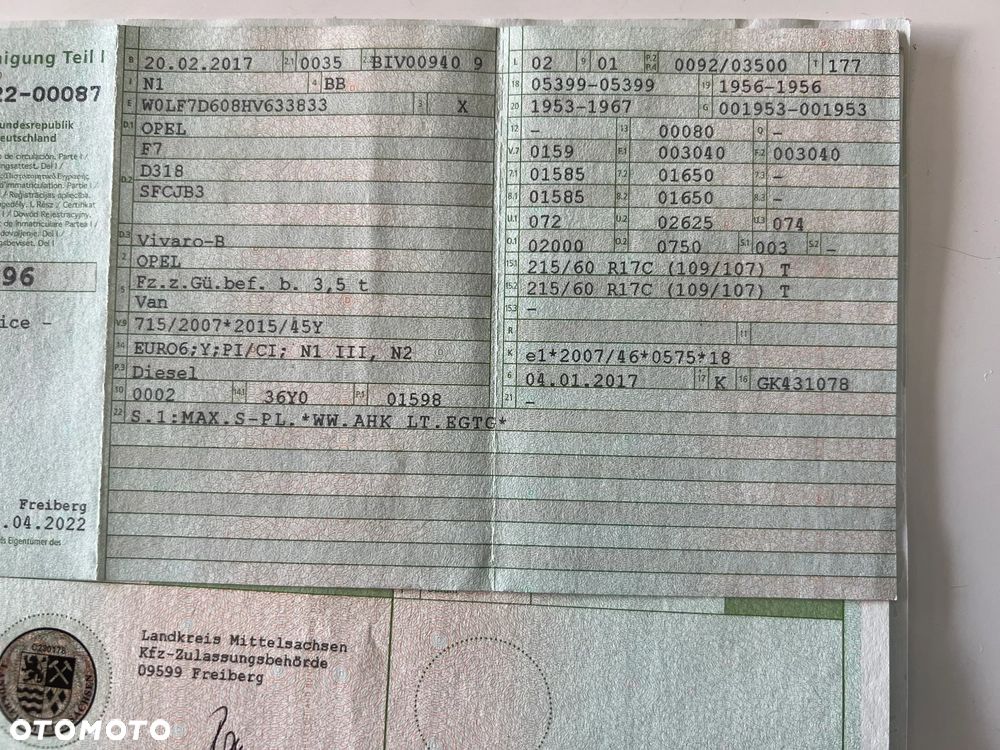 nigung Teil I
22-00087
undesrepublik
eutschland
96
ice -
Freiberg
.04.2022
B 20.02.2017 2.1 0035 2.2 BIV00940 9
J N1 4 BB
E W0LF7D608HV633833 3 X
D.1 OPEL
F7
D.2 D318
SFCJB3
D.3 Vivaro-B
2 OPEL
5 Fz.z.Gü.bef. b. 3,5 t
Van
V.9 715/2007*2015/45Y
14 EURO6;Y;PI/CI; N1 III, N2
P.3 Diesel
10 0002 14.1 36Y0 P.1 01598
22 S.1:MAX.S-PL.*WW.AHK LT.EGTG*
L 02 9 01 P.2 P.4 0092/03500 T 177
18 05399-05399 19 1956-1956
20 1953-1967 G 001953-001953
12 - 13 00080 Q -
V.7 0159 F.1 003040 F.2 003040
7.1 01585 7.2 01650 7.3 -
8.1 01585 8.2 01650 8.3 -
U.1 072 U.2 02625 U.3 074
O.1 02000 O.2 0750 S.1 003 S.2 -
15.1 215/60 R17C (109/107) T
15.2 215/60 R17C (109/107) T
15.3 -
R 11
K e1*2007/46*0575*18
6 04.01.2017 17 K 16 GK431078
21 -
Landkreis Mittelsachsen
Kfz-Zulassungsbehörde
09599 Freiberg
OTOMOTO